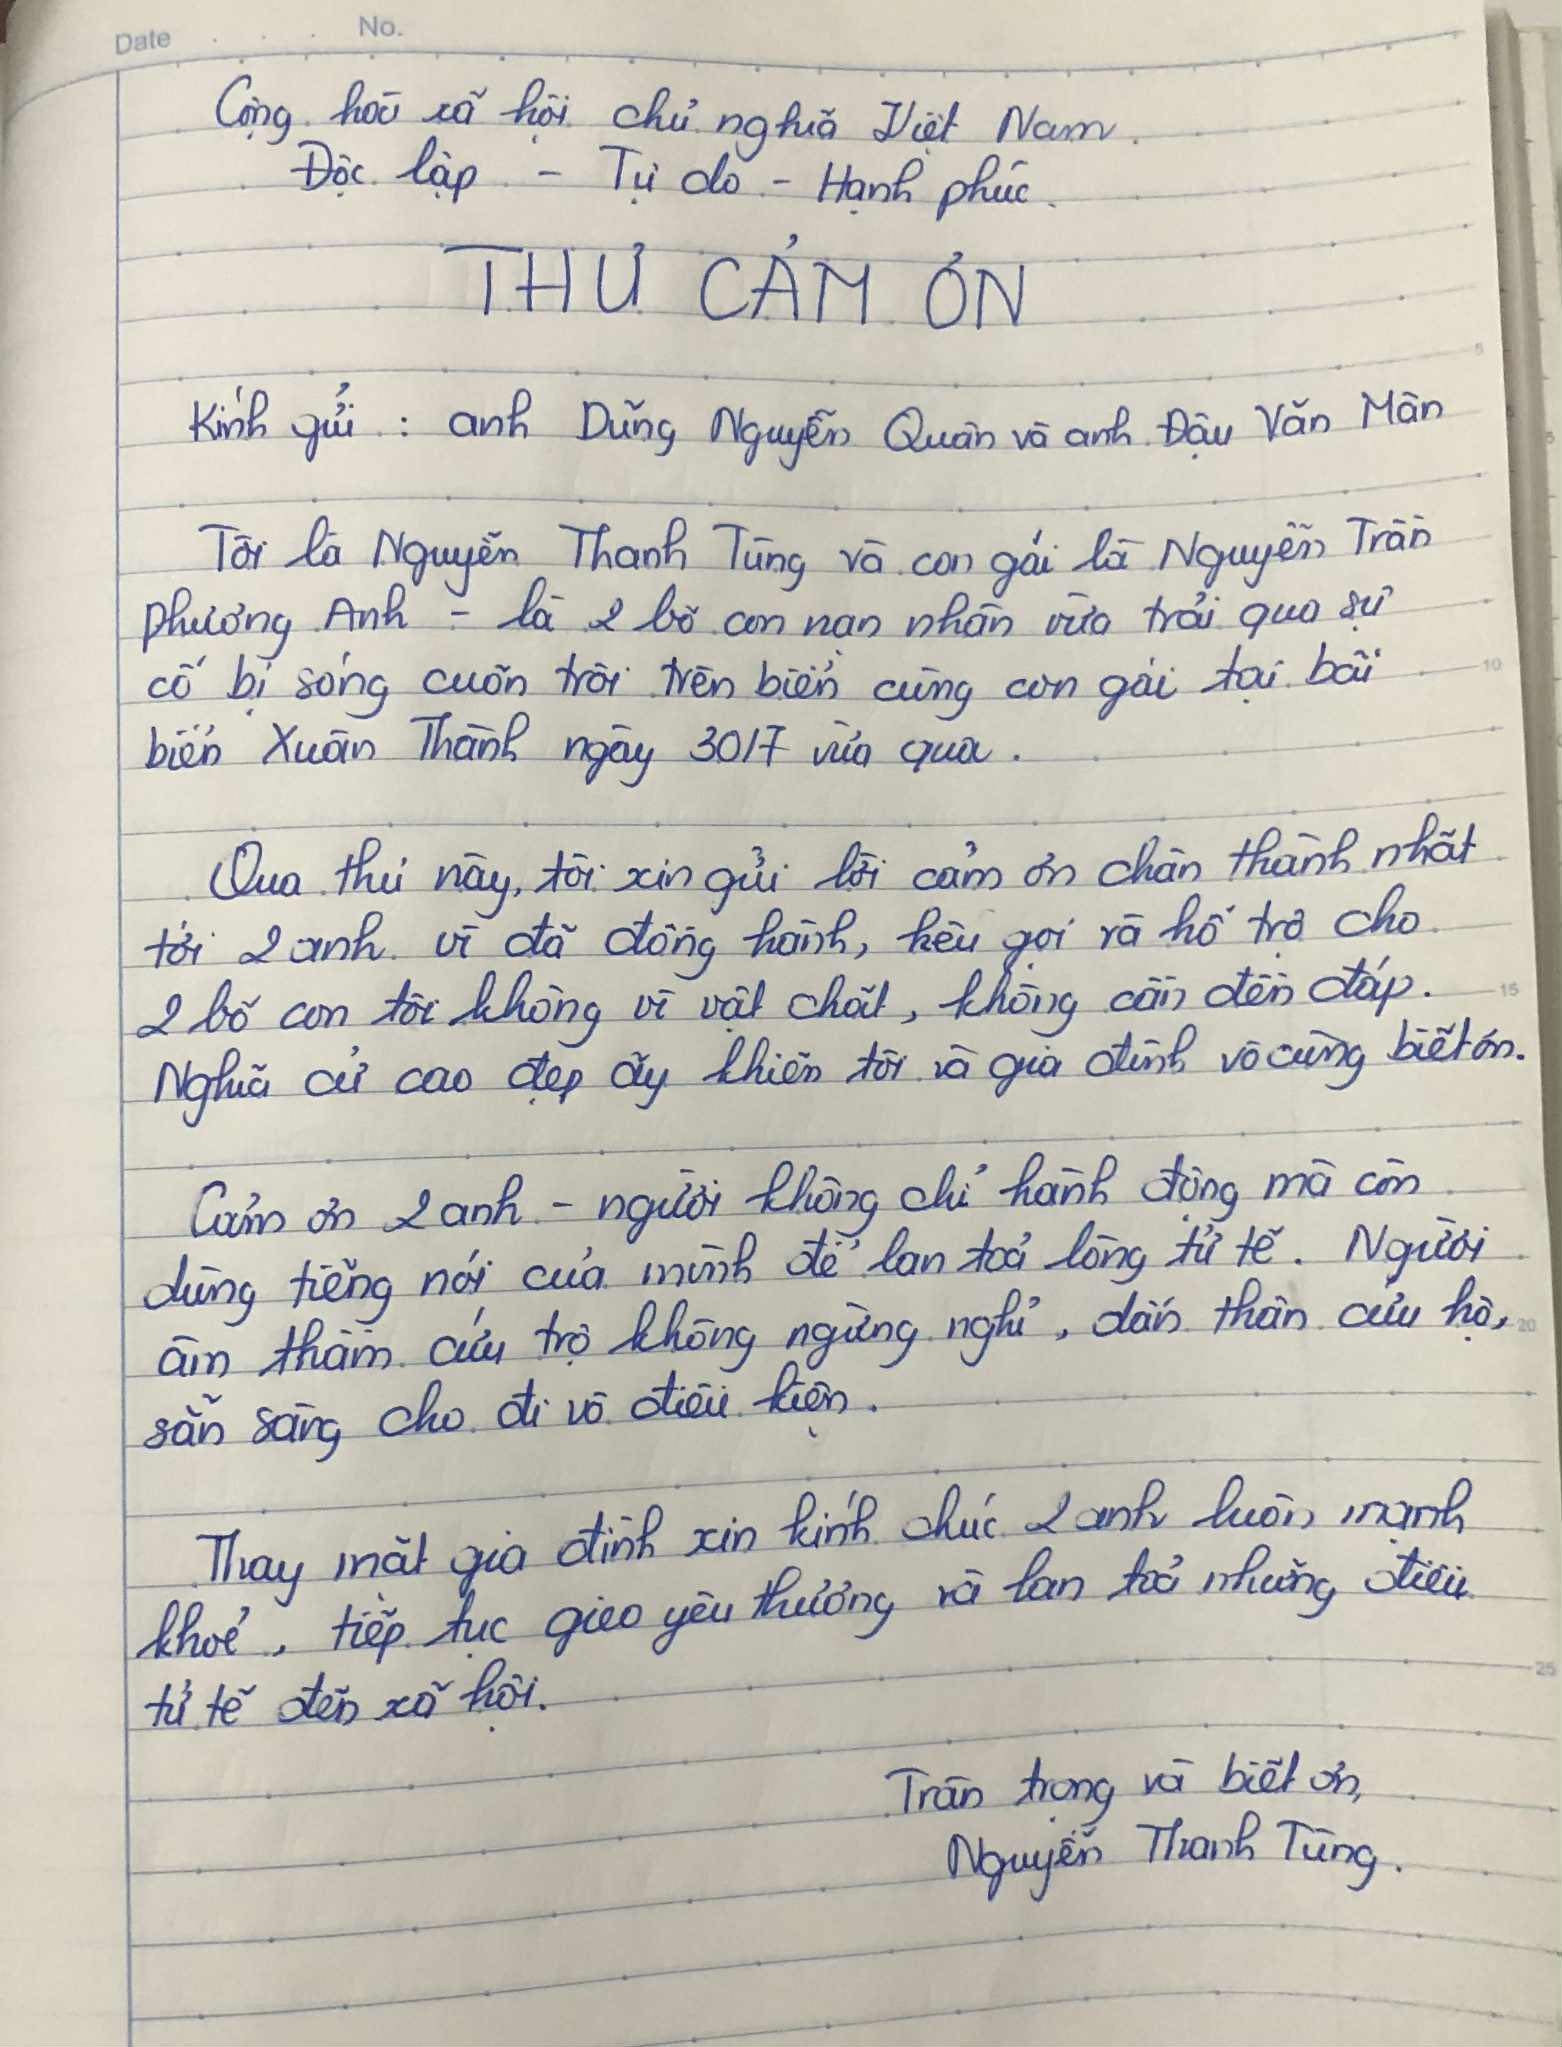 Date No.
Cộng hoà xã hội chủ nghĩa Việt Nam.
Độc lập - Tự do - Hạnh phúc.
THƯ CẢM ƠN
Kính gửi : anh Dũng Nguyễn Quân và anh Đậu Văn Mân
Tôi là Nguyễn Thanh Tùng và con gái là Nguyễn Trần
Phương Anh - là 2 bố con nạn nhân vừa trải qua sự
cố bị sóng cuốn trôi trên biển cùng con gái tại bãi
biển Xuân Thành ngày 30/7 vừa qua.
Qua thư này, tôi xin gửi lời cảm ơn chân thành nhất
tới 2 anh vì đã đồng hành, kêu gọi và hỗ trợ cho
2 bố con tôi không vì vật chất, không cần đền đáp.
Nghĩa cử cao đẹp ấy khiến tôi và gia đình vô cùng biết ơn.
Cảm ơn 2 anh - người không chỉ hành động mà còn
dùng tiếng nói của mình để lan toả lòng tử tế. Người
âm thầm cứu trợ không ngừng nghỉ, dấn thân cứu hộ,
sẵn sàng cho đi vô điều kiện.
Thay mặt gia đình xin kính chúc 2 anh luôn mạnh
khoẻ, tiếp tục gieo yêu thương và lan toả những điều
tử tế đến xã hội.
Trân trọng và biết ơn,
Nguyễn Thanh Tùng.
5
10
15
20
25